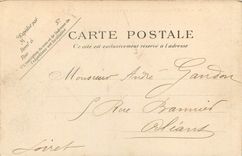 CARTE POSTALE
Ce côté est exclusivement réservé à l'adresse
Expédié par
M
Monsieur André Gandon
5 Rue Bannier
Orléans
Loiret